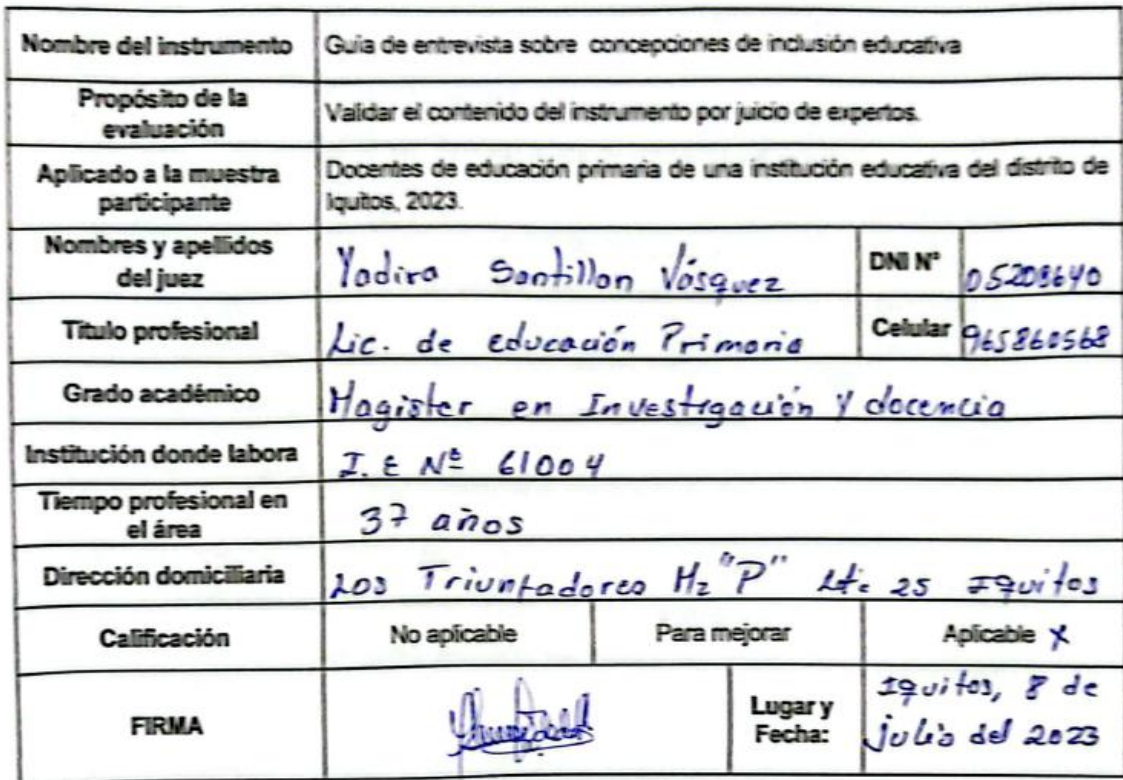 Nombre del instrumento Guía de entrevista sobre concepciones de inclusión educativa
Propósito de la evaluación Validar el contenido del instrumento por juicio de expertos.
Aplicado a la muestra participante Docentes de educación primaria de una institución educativa del distrito de
Iquitos, 2023.
Nombres y apellidos del juez Yadira Santillan Vásquez DNI N° 05208640
Título profesional Lic. de educación Primaria Celular 965860568
Grado académico Magister en Investigación y docencia
Institución donde labora I.E Nº 61004
Tiempo profesional en el área 37 años
Dirección domiciliaria Los Triunfadores Mz "P" Lte 25 Iquitos
Calificación No aplicable Para mejorar Aplicable X
FIRMA Lugar y Fecha: Iquitos, 8 de
julio del 2023